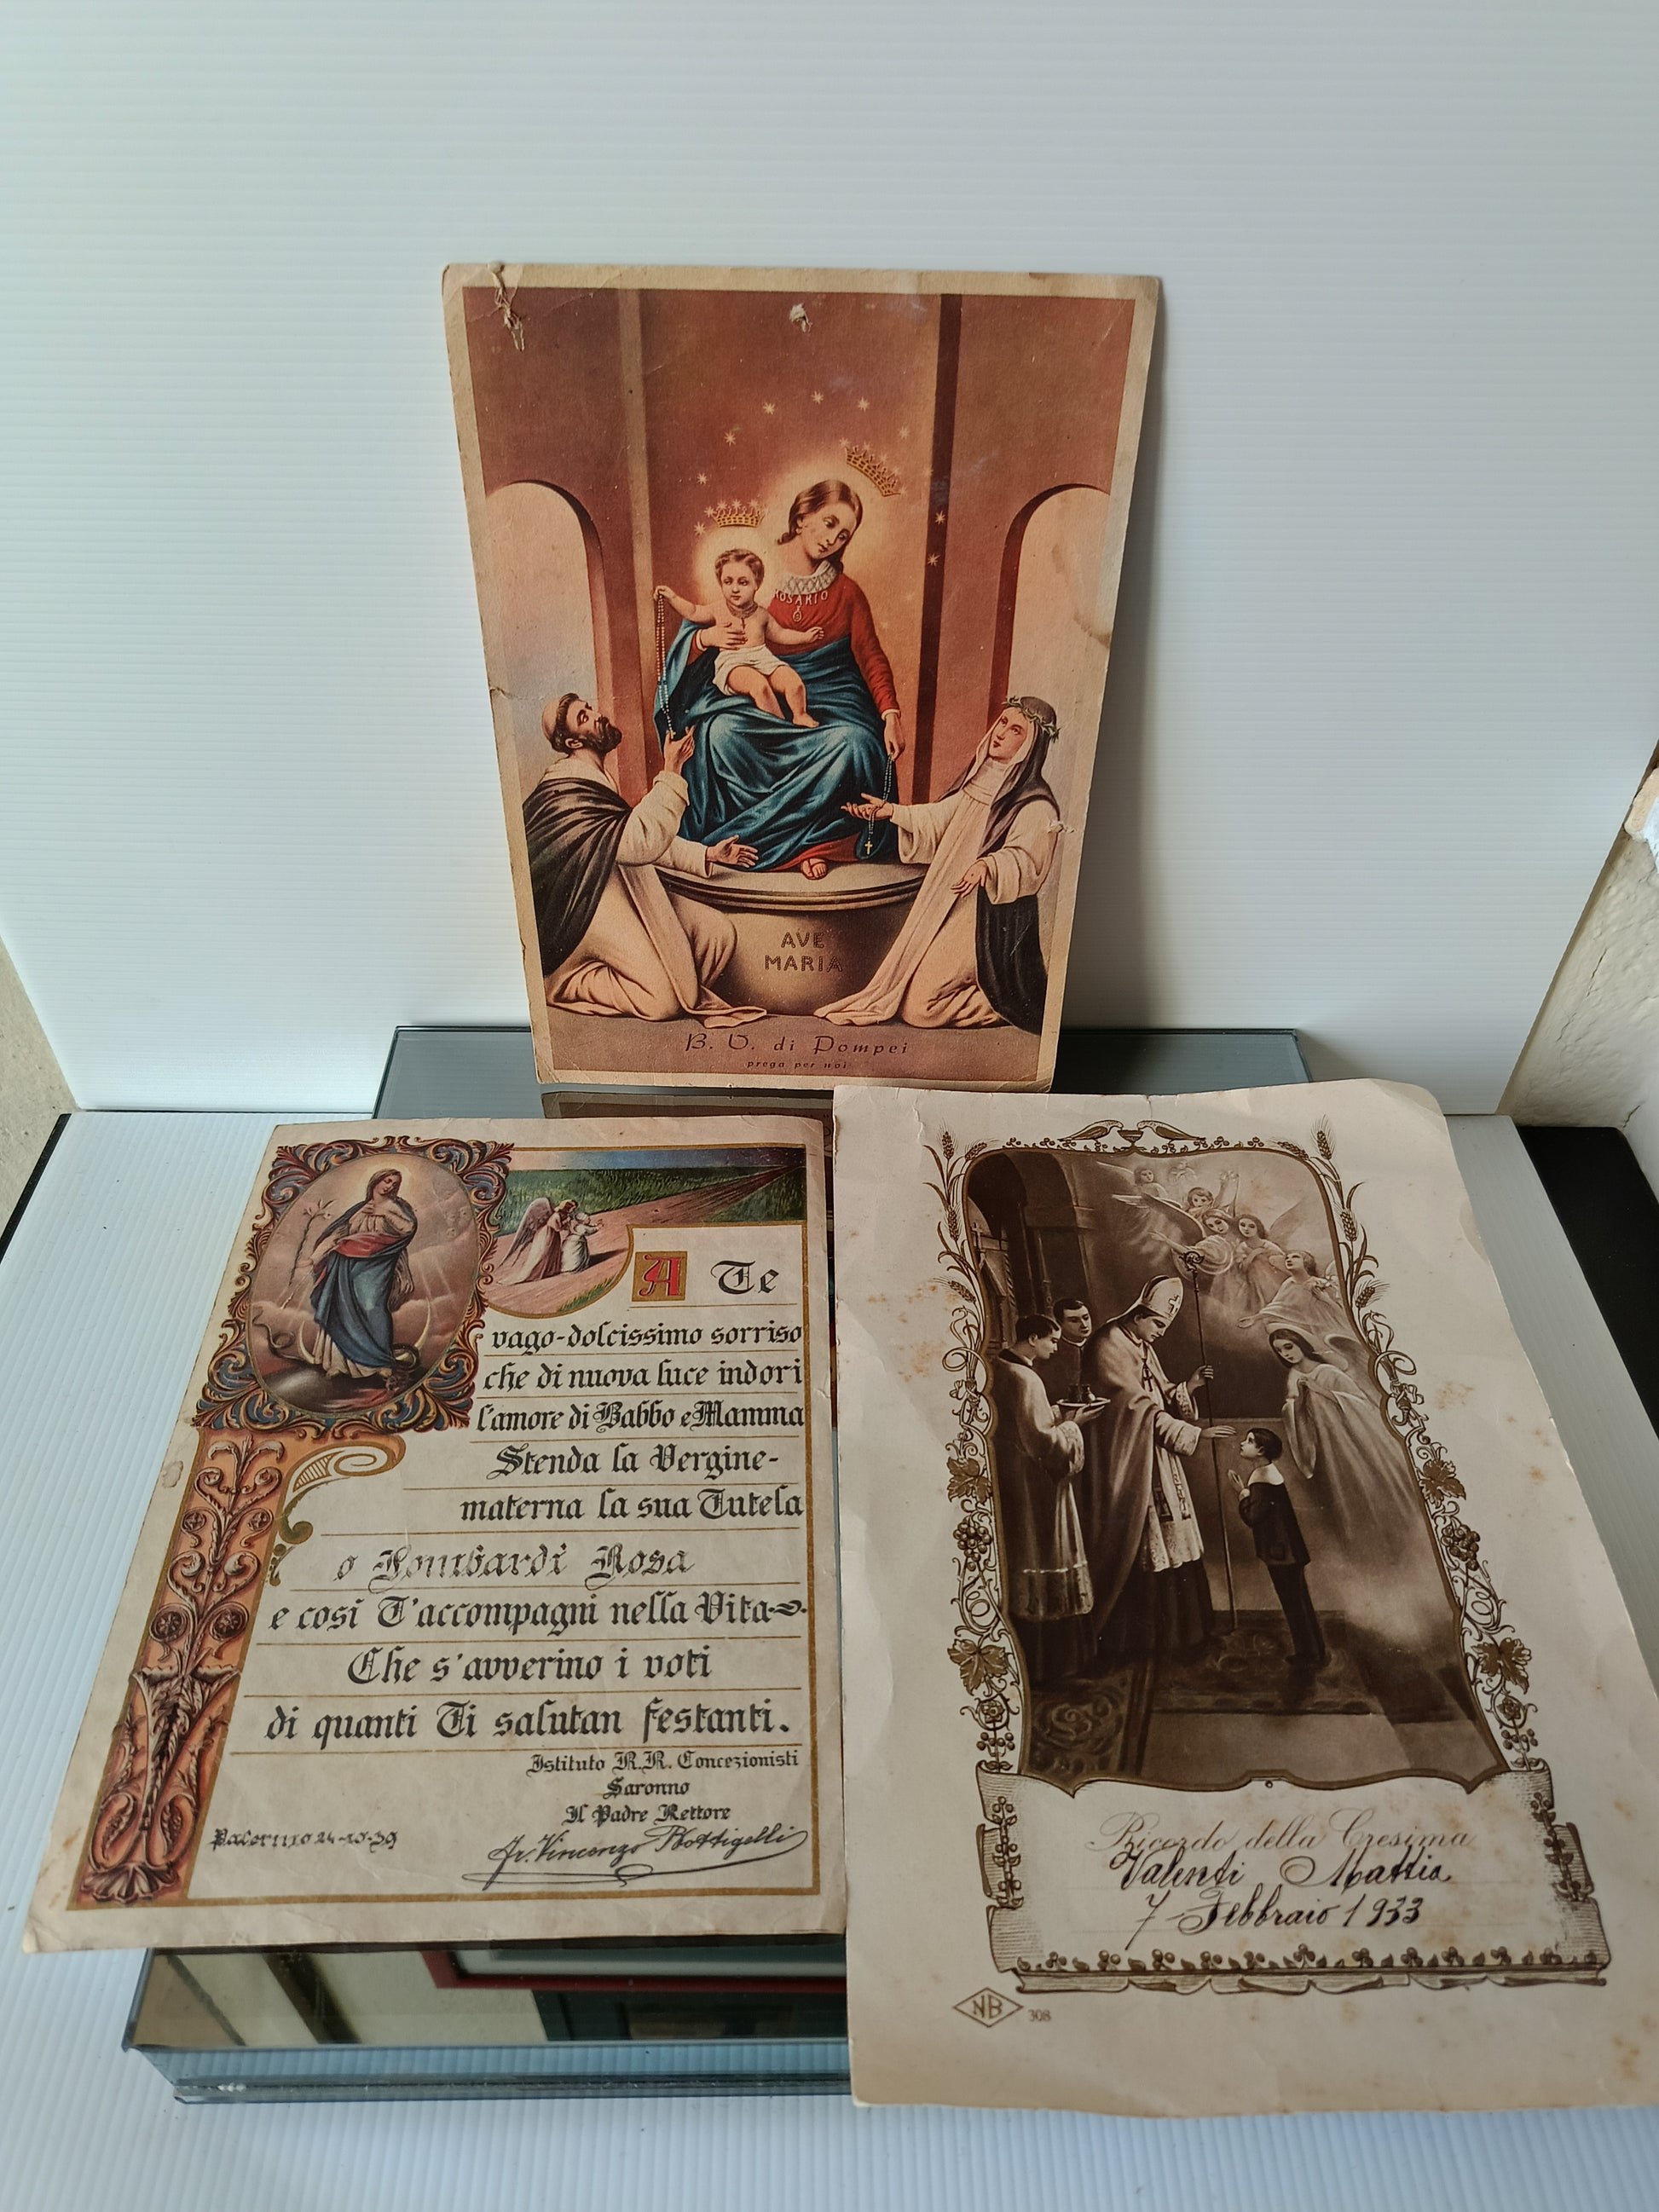 ROSARIO
AVE
MARIA
B. V. di Pompei
prega per noi
A Te
vago-dolcissimo sorriso
che di nuova luce indori
l'amore di Babbo e Mamma
Stenda la Vergine-
materna la sua Tutela
o Lombardi Rosa
e così T'accompagni nella Vita
Che s'avverino i voti
di quanti Ti salutan festanti.
Istituto R.R. Concezionisti
Saronno
Il Padre Rettore
24-10-39
Fr. Vincenzo
Ricordo della Cresima
Valenti Mattia
7 Febbraio 1933
NB 308